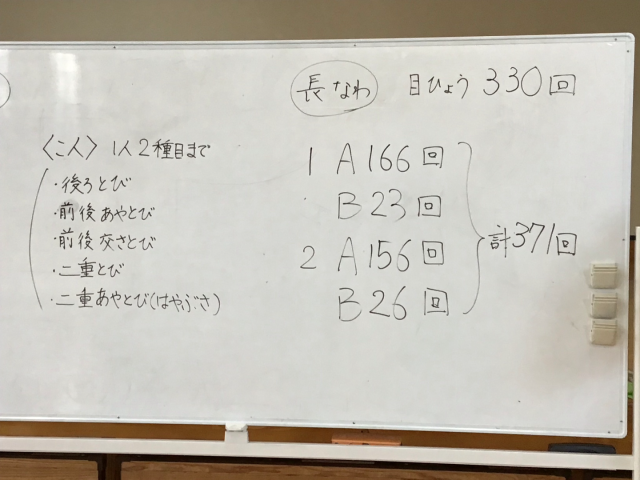 長なわ 目ひょう 330回
〈こ人〉 1人2種目まで
・後ろとび
・前後あやとび
・前後交さとび
・二重とび
・二重あやとび(はやぶさ)
1 A 166回
B 23回
2 A 156回
B 26回
計371回